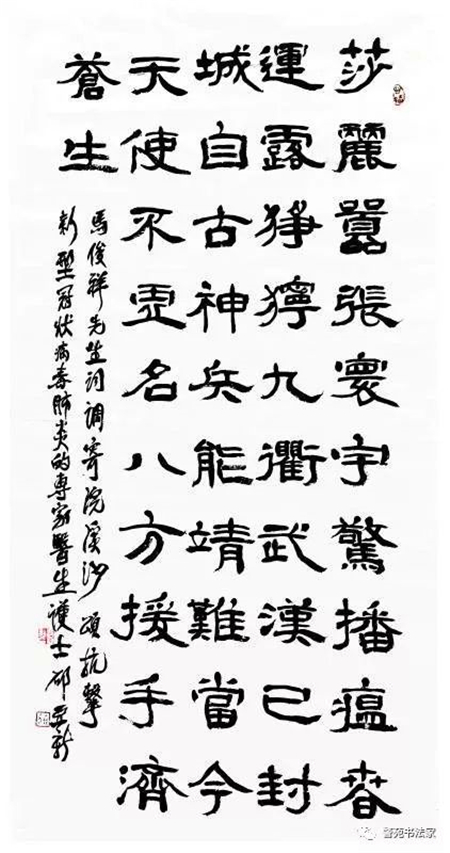 莎麗囂張寰宇驚播瘟春
運露猙獰九衢武漢已封
城自古神兵能靖難當今
天使不虛名八方援手濟
蒼生
馬俊祥先生詞調寄浣溪沙 頌抗擊
新型冠状病毒肺炎的專家醫生護士
警苑书法家